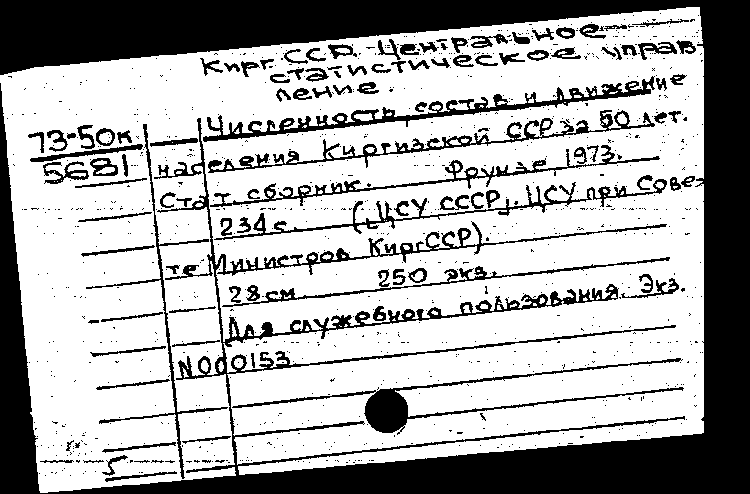 Кирг. ССР. Центральное
статистическое управ-
ление.
73-50к
5681
Численность, состав и движение
населения Киргизской ССР за 50 лет.
Стат. сборник. Фрунзе, 1973.
234 с. ([ЦСУ СССР]. ЦСУ при Сове-
те Министров КиргССР).
28 см 250 экз.
Для служебного пользования. Экз.
N000153
5